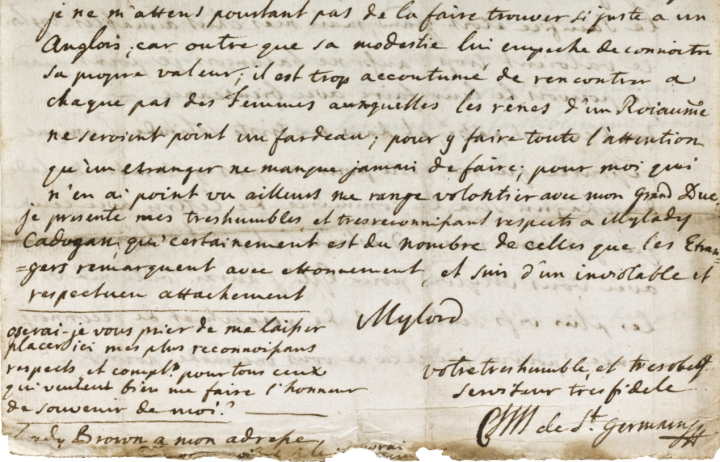 je ne m'attens pourtant pas de la faire trouver si juste a un
Anglois, car outre que sa modestie lui empeche de connoitre
sa propre valeur; il est trop accoutumé de rencontrer a
chaque pas des femmes auxquelles les rênes d'un Roiaume
ne seroient point un fardeau; pour y faire toute l'attention
qu'un etranger ne manque jamais de faire; pour moi qui
n'en ai point vu ailleurs me range volontier avec mon Grand Duc,
je presente mes treshumbles et tresreconnissant respects a Mylady
Cadogan, qui certainement est du nombre de celles que les Etran-
=gers remarquent avec ettonnement, et suis d'un inviolable et
respectueu attachement
Mylord
votre treshumble et tresobeisst
serviteur tresfidele
de St. Germain
oserai-je vous prier de me laisser
placer ici mes plus reconnoissans
respects et complts pour tous ceux
qui veulent bien me faire l'honneur
de souvenir de moi?
Lady Brown a mon adresse